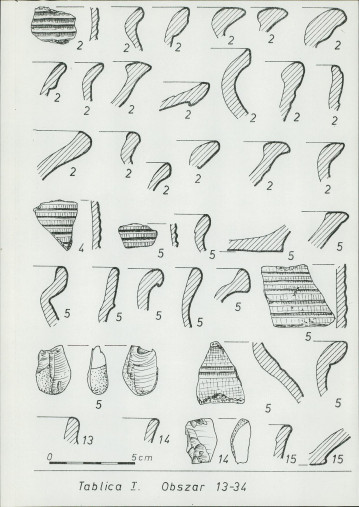 2 2 2 2 2 2
2 2 2 2 2 2 2
2 2 2 2 2 2
4 5 5 5 5
5 5 5 5 5 5
5 5 5
13 14 14 15 15
0 5cm
Tablica I. Obszar 13-34